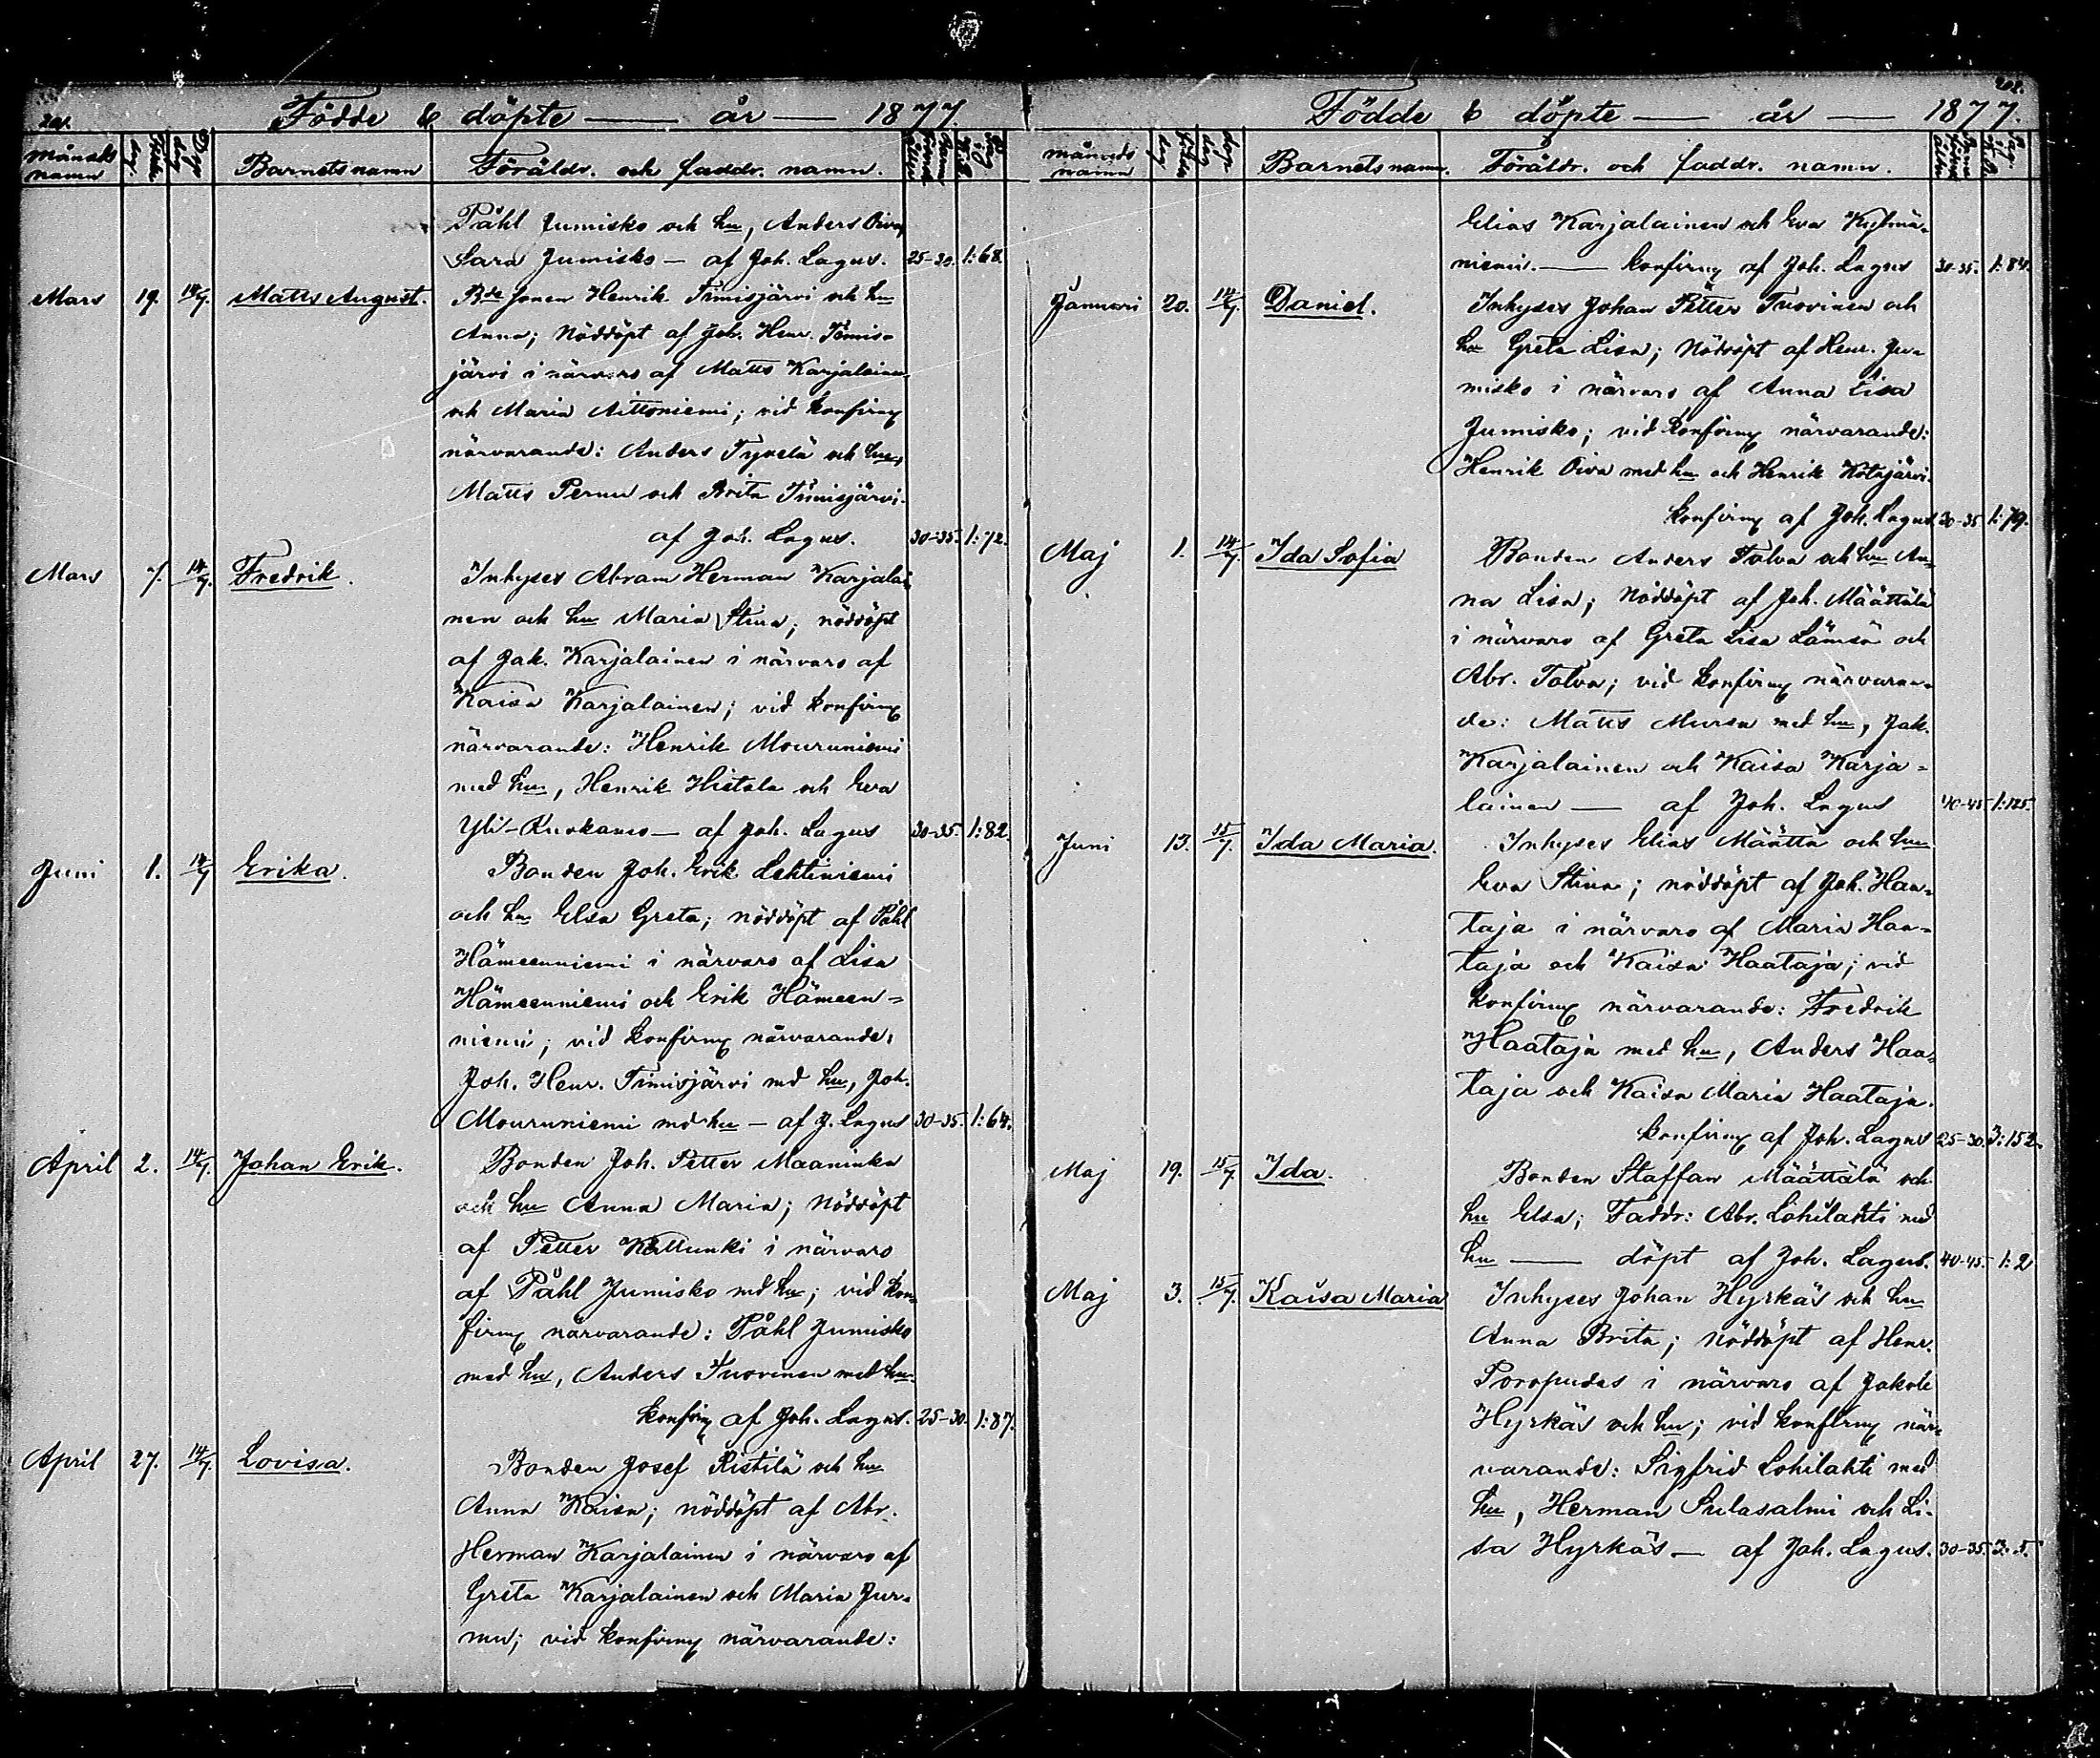 201.
Födde & döpte — år — 1877.
Månads namn
Födelse dag
Dop dag
Barnets namn
Föräldr. och faddr. namn.
Påhl Jumisko och hu, Anders Oiva,
Sara Jumisko — af Joh. Lagus. 25-30. 1:68.
Mars 19. 14/7. Matts August. Bde sonen Henrik Timisjärvi och hu
Anna; Nöddöpt af Joh. Henr. Timis-
järvi i närvaro af Matts Karjalainen
och Maria Aittoniemi; vid konfirmg
närvarande: Anders Tyvelä och hu,
Matts Pernu och Brita Timisjärvi.
af Joh. Lagus. 30-35. 1:72.
Mars 7. 14/7. Fredrik. Inhyses Abram Herman Karjalai-
nen och hu Maria Stina; nöddöpt
af Jak. Karjalainen i närvaro af
Kaisa Karjalainen; vid konfirmg
närvarande: Henrik Mouruniemi
med hu, Henrik Hietala och Eva
Yli-Kurkamo — af Joh. Lagus 30-35. 1:82.
Juni 1. 14/7 Erika. Bonden Joh. Erik Lehtiniemi
och hu Elsa Greta; nöddöpt af Påhl
Hämeenniemi i närvaro af Lisa
Hämeenniemi och Erik Hämeen=
niemi; vid konfirmg närvarande:
Joh. Henr. Timisjärvi md hu, Joh.
Mouruniemi md hu — af J. Lagus 30-35. 1:64.
April 2. 14/7. Johan Erik. Bonden Joh. Petter Maaninka
och hu Anna Maria; Nöddöpt
af Petter Kallunki i närvaro
af Påhl Jumisko md hu; vid kon-
firmg närvarande: Påhl Jumisko
med hu, Anders Tuovinen med hu.
konfirmg af Joh. Lagus. 25-30. 1:87.
April 27. 14/7. Lovisa. Bonden Josef Ristilä och hu
Anna Kaisa; nöddöpt af Abr.
Herman Karjalainen i närvaro af
Greta Karjalainen och Maria Jur-
mu; vid konfirmg närvarande:
202.
Födde & döpte — år — 1877.
månads namn
Barnets namn. Föräldr. och faddr. namn.
Elias Karjalainen och Eva Kylmä-
niemi. — konfirmg af Joh. Lagus 30-35. 1:84.
Januari 20. 14/7. Daniel. Inhyses Johan Petter Tuovinen och
hu Greta Lisa; Nöddöpt af Henr. Ju-
misko i närvaro af Anna Lisa
Jumisko; vid konfirmg närvarande:
Henrik Oiva med hu och Henrik Kotajärvi.
konfirmg af Joh. Lagus 30-35 1:79.
Maj 1. 14/7. Ida Sofia Bonden Anders Tolva och hu An-
na Lisa; Nöddöpt af Joh. Määttälä
i närvaro af Greta Lisa Lämsä och
Abr. Tolva; vid konfirmg närvaran-
de: Matts Mursu med hu, Jak.
Karjalainen och Kaisa Karja=
lainen — af Joh. Lagus 40-45 1:125.
Juni 13. 15/7. Ida Maria. Inhyses Elias Määttä och hu
Eva Stina; nöddöpt af Joh. Haa-
taja i närvaro af Maria Haa-
taja och Kaisa Haataja; vid
konfirmg närvarande: Fredrik
Haataja med hu, Anders Haa-
taja och Kaisa Maria Haataja.
konfirmg af Joh. Lagus 25-30. 3:152.
Maj 19. 15/7. Ida. Bonden Staffan Määttälä och
hu Elsa; Faddr: Abr. Lohilahti md
hu — döpt af Joh. Lagus. 40-45. 1:2
Maj 3. 15/7. Kaisa Maria Inhyses Johan Hyrkäs och hu
Anna Brita; Nöddöpt af Henr.
Poropudas i närvaro af Jakob
Hyrkäs och hu; vid konfirmg när-
varande: Sigfrid Lohilahti med
hu, Herman Sulasalmi och Li-
sa Hyrkäs — af Joh. Lagus. 30-35. 3:5.